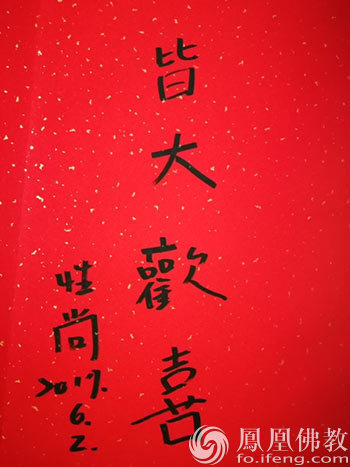 皆大歡喜
性尚
2019.
6.
2.
鳳凰佛教
fo.ifeng.com